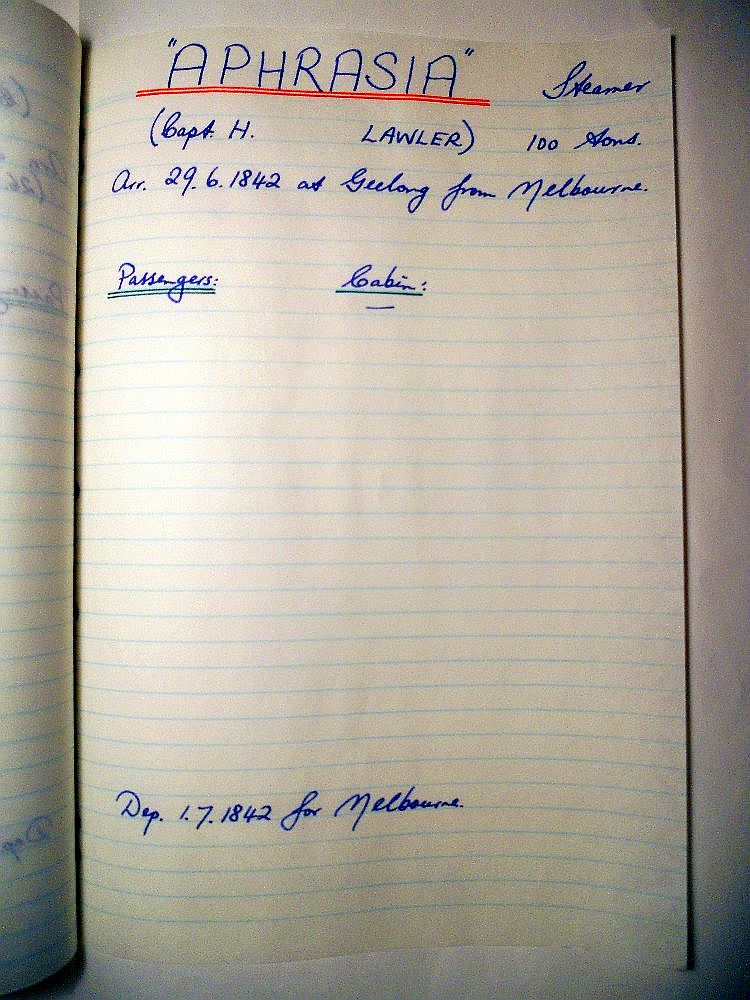 "APHRASIA" Steamer
(Capt. H. LAWLER) 100 tons.
Arr. 29.6.1842 at Geelong from Melbourne.
Passengers: Cabin:
—
Dep. 1.7.1842 for Melbourne.